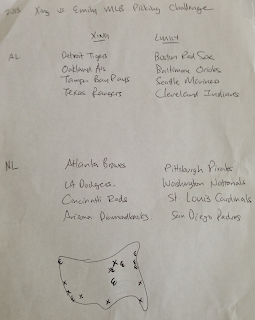 2013 Xing vs Emily MLB Picking Challenge
XING EMILY
AL Detroit Tigers Boston Red Sox
Oakland A's Baltimore Orioles
Tampa Bay Rays Seattle Mariners
Texas Rangers Cleveland Indians
NL Atlanta Braves Pittsburgh Pirates
LA Dodgers. Washington Nationals
Cincinnati Reds St Louis Cardinals
Arizona Diamondbacks San Diego Padres